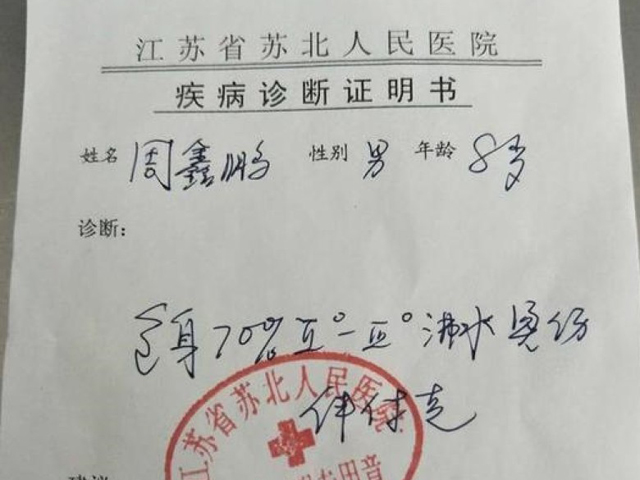 江苏省苏北人民医院
疾病诊断证明书
姓名 周鑫鹏 性别 男 年龄 8岁
诊断：
全身70% Ⅱ°-Ⅲ°沸水烫伤
伴休克
江苏省苏北人民医院
专用章